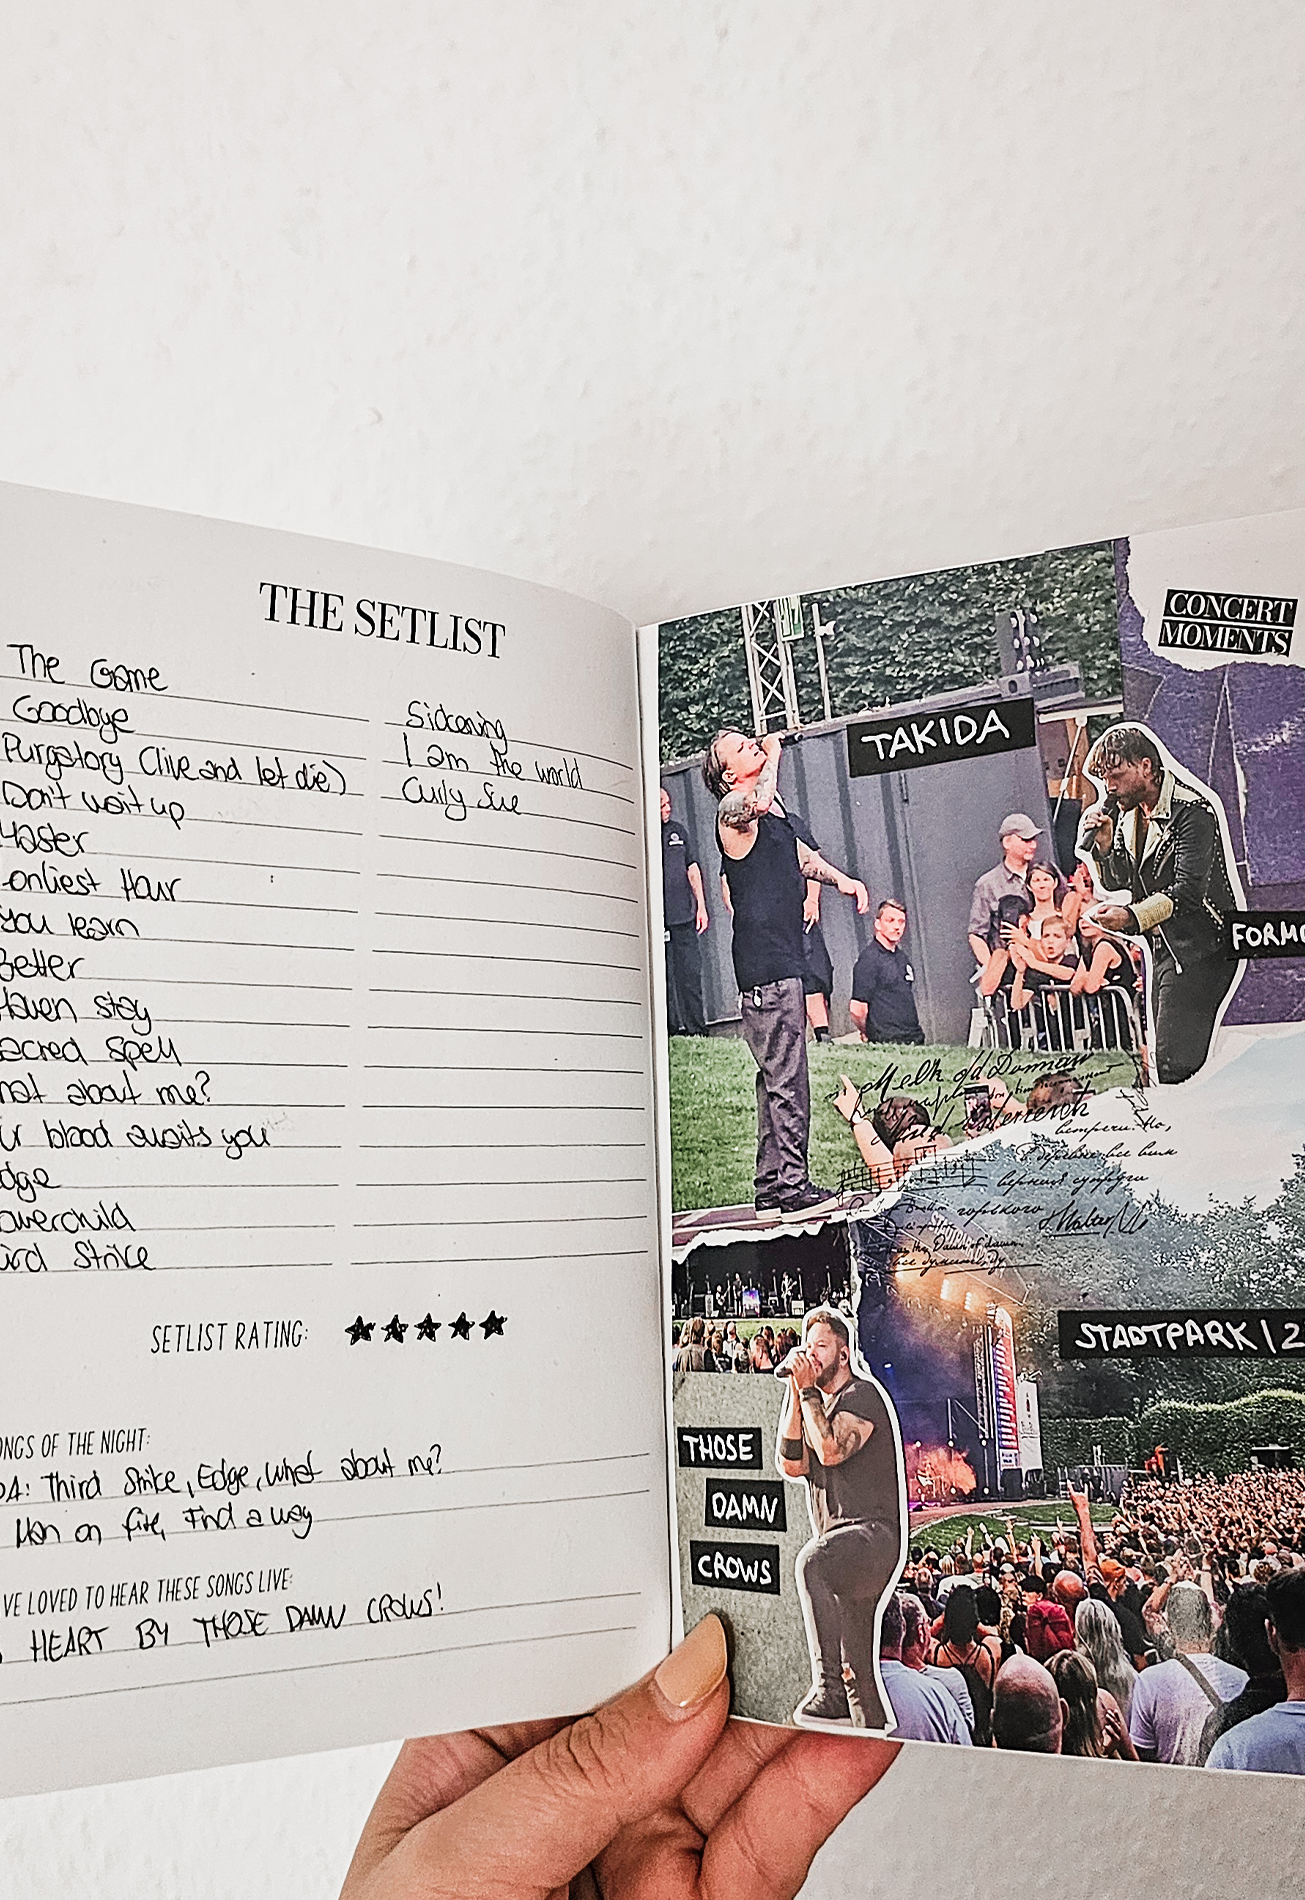 THE SETLIST
The Game
Goodbye
Purgatory (live and let die)
Don't wait up
Master
onliest Hour
you learn
Better
Haven stay
acred Spell
hat about me?
ur blood awaits you
dge
owerchild
ird Strike
Sickening
I am the world
Curly Sue
SETLIST RATING:
ONGS OF THE NIGHT:
DA: Third Strike, Edge, What about me?
Man on fire, Find a way
VE LOVED TO HEAR THESE SONGS LIVE:
HEART BY THOSE DAMN CROWS!
CONCERT
MOMENTS
TAKIDA
FORM
Melk a/d Donnau
Österreich
STADTPARK | 2
THOSE
DAMN
CROWS